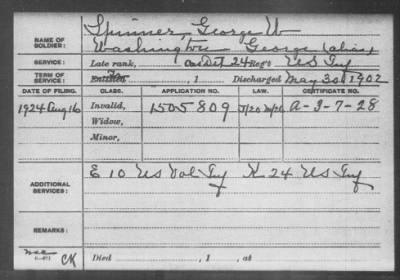 Spinner, George W
NAME OF SOLDIER: Washington George (alias)
SERVICE: Late rank, Det 24 Reg't US Inf
TERM OF SERVICE: Enlisted , 1 Discharged May 30 1902
DATE OF FILING. CLASS. APPLICATION NO. LAW. CERTIFICATE NO.
1924 Aug 16 Invalid, 1505809 A-3-7-28
Widow,
Minor,
ADDITIONAL SERVICES: E 10 US Vol Inf K 24 US Inf
REMARKS:
CK Died , 1 , at